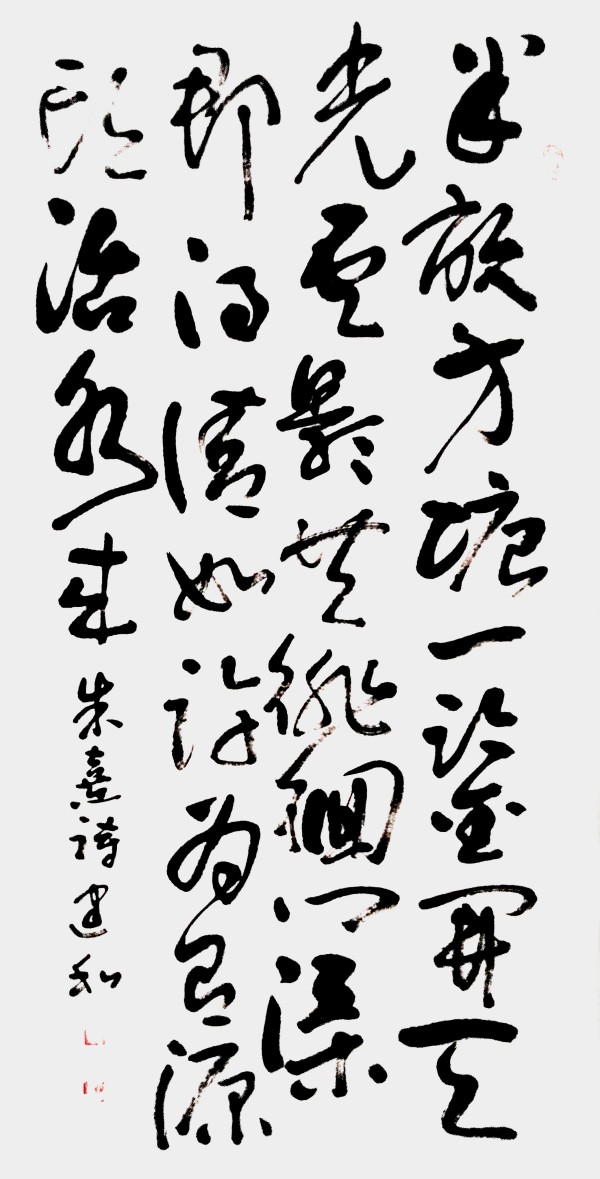 半畝方塘一鑒開天
光雲影共徘徊問渠
那得清如許為有源
頭活水來 朱熹詩建和